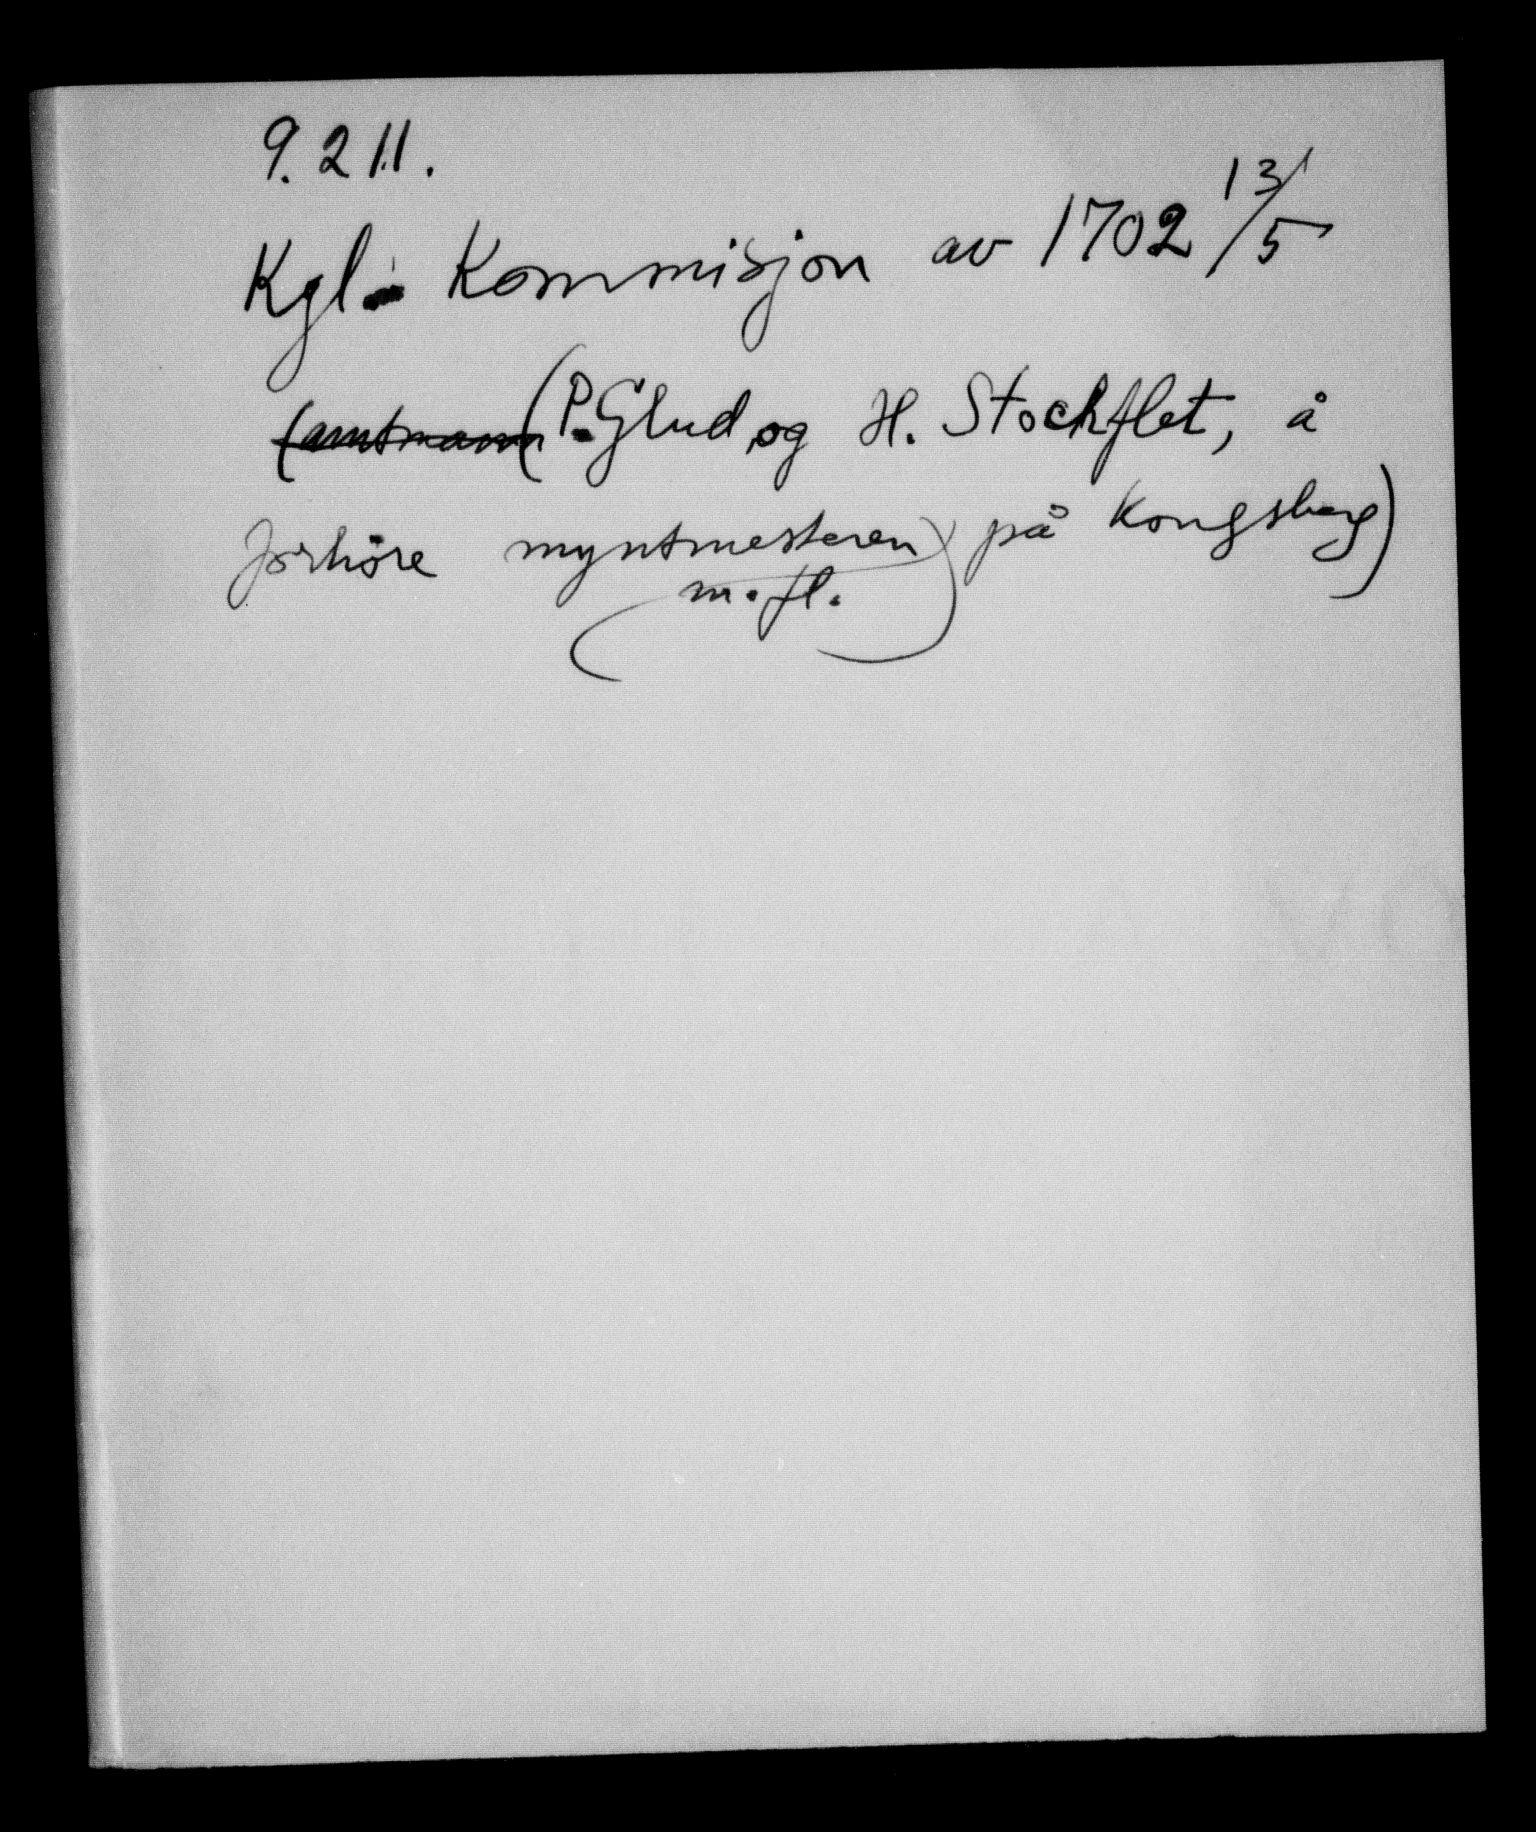 9.2 11.
Kgl. Kommisjon av 1702 13/5
(amtmann (P. Glud og H. Stockflet, å
forhöre myntmesteren på Kongsberg)
m.fl.